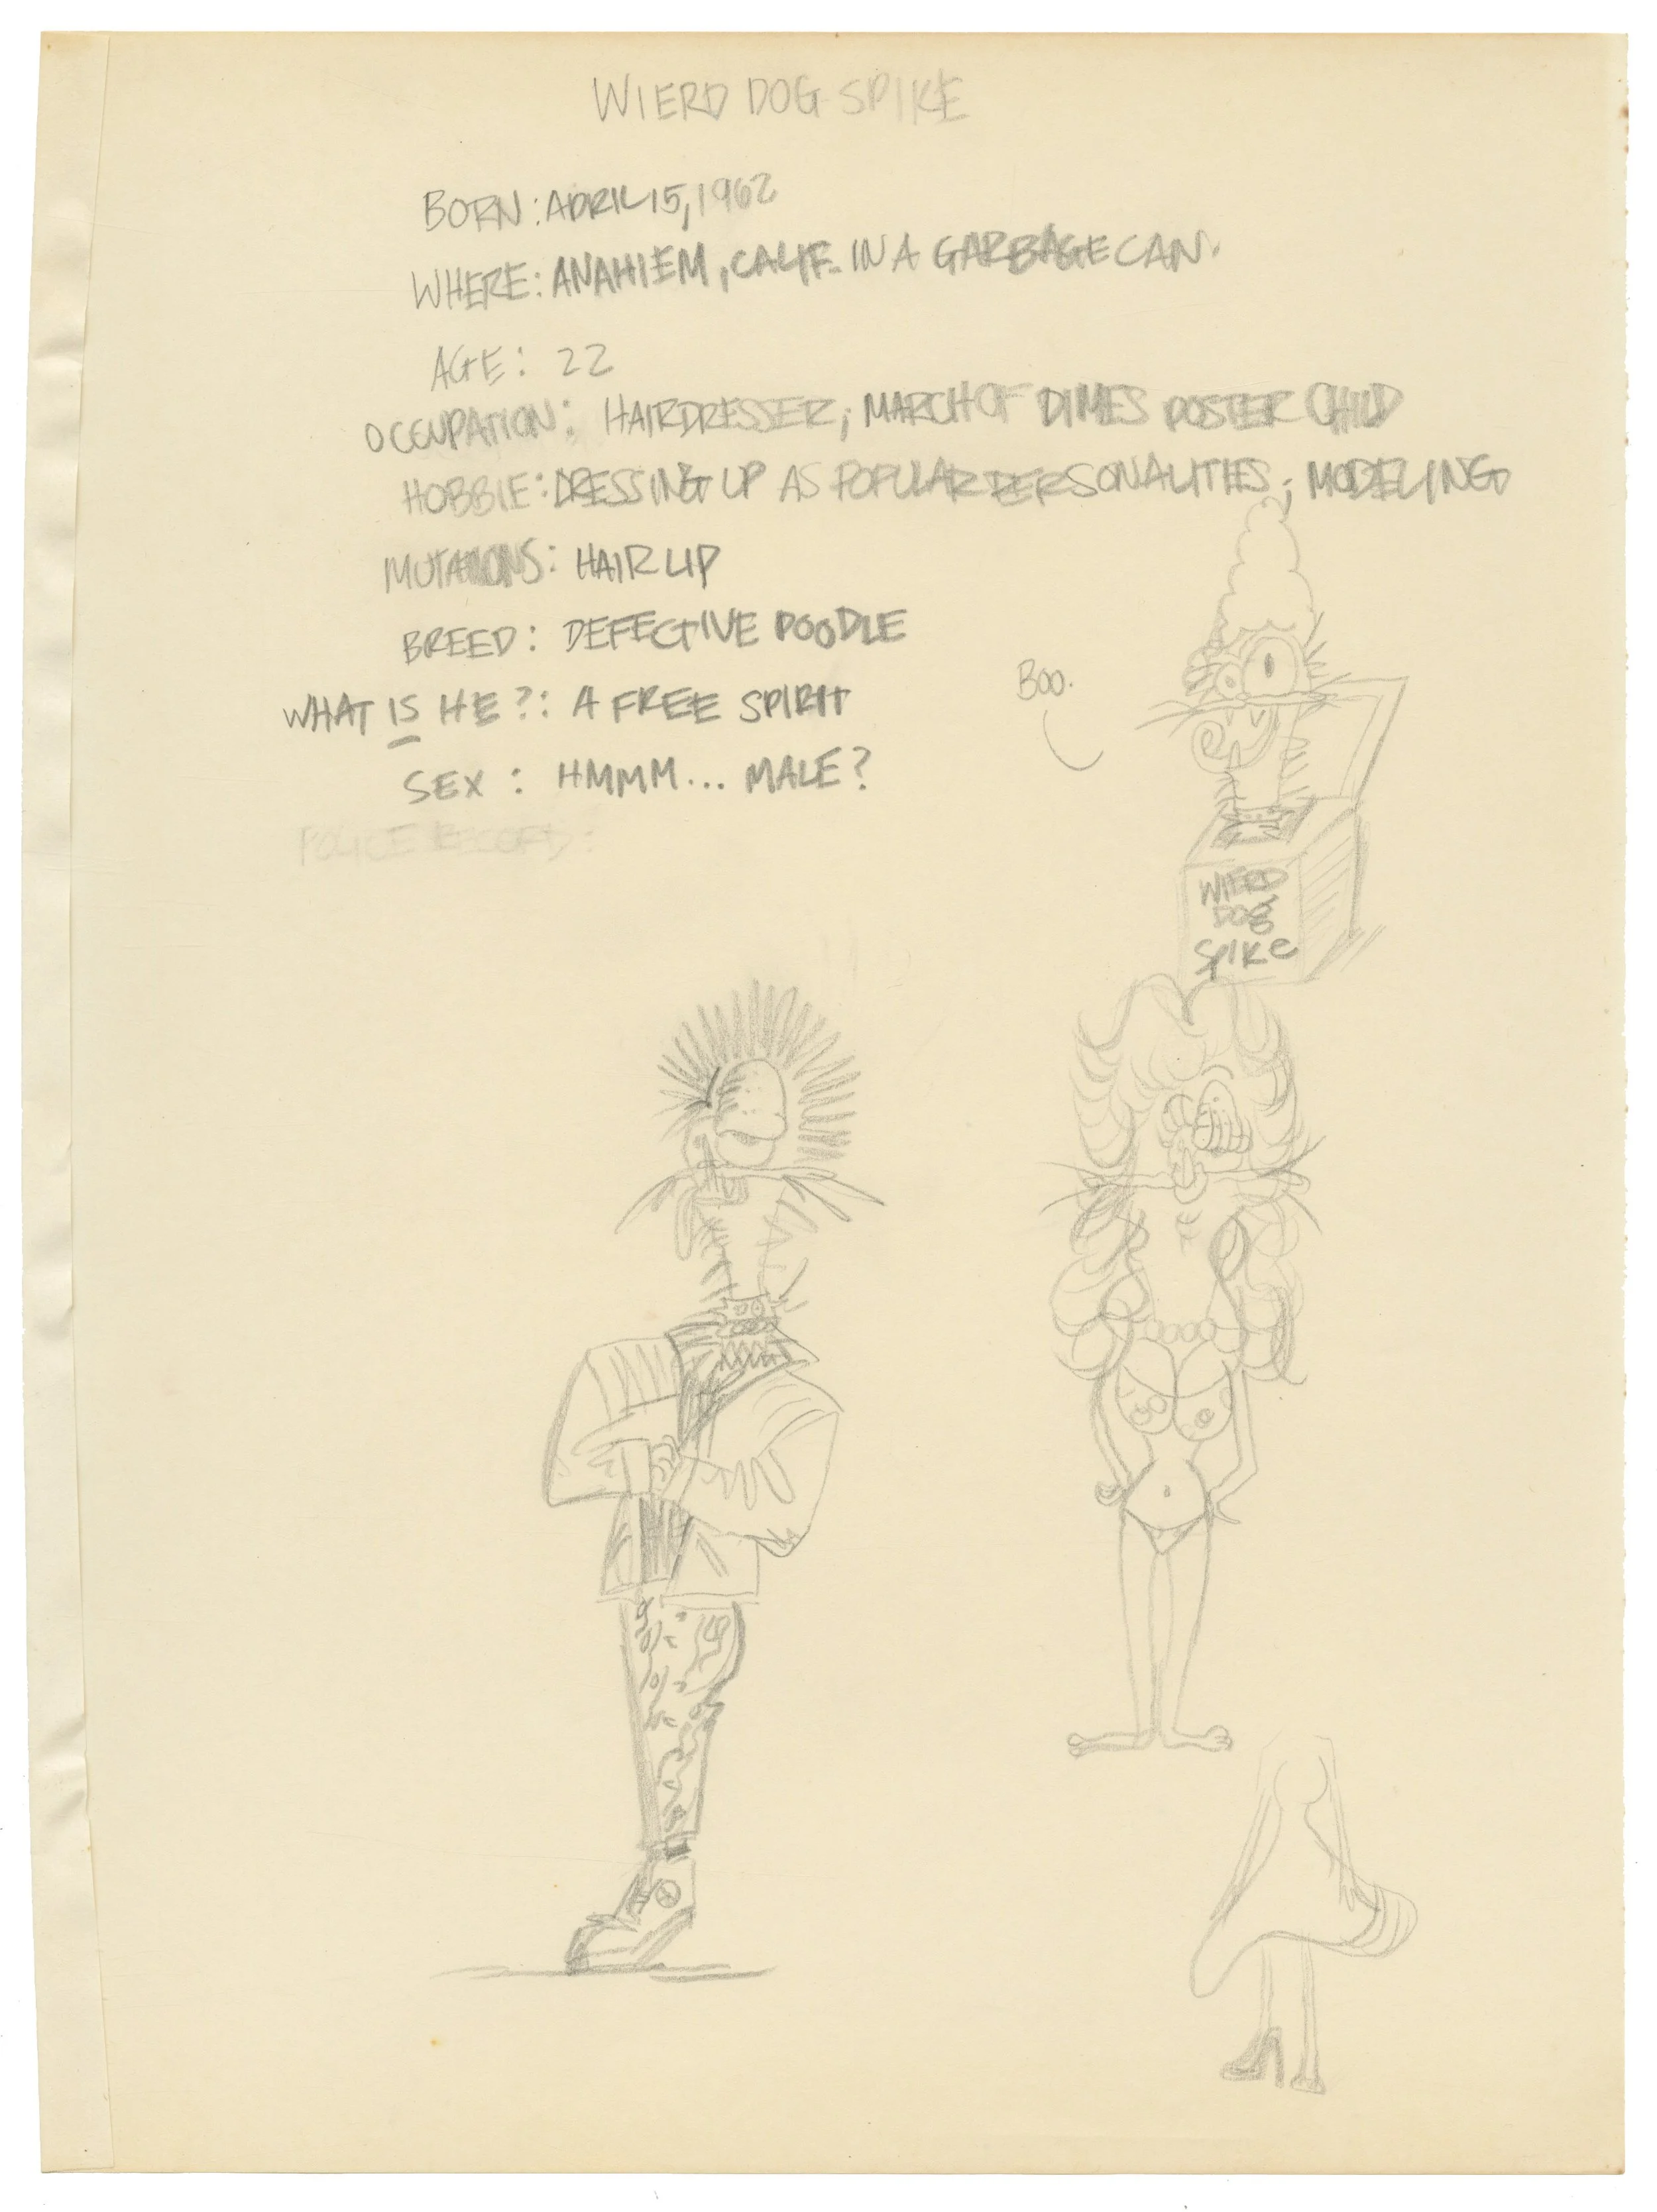 WIERD DOG SPIKE
BORN: APRIL 15, 1962
WHERE: ANAHIEM, CALIF. IN A GARBAGE CAN.
AGE: 22
OCCUPATION: HAIRDRESSER; MARCH OF DIMES POSTER CHILD
HOBBIE: DRESSING UP AS POPULAR PERSONALITIES; MODELING
MUTATIONS: HAIR LIP
BREED: DEFECTIVE POODLE
WHAT IS HE?: A FREE SPIRIT
SEX: HMMM... MALE?
POLICE RECORD:
BOO.
WIERD
DOG
SPIKE